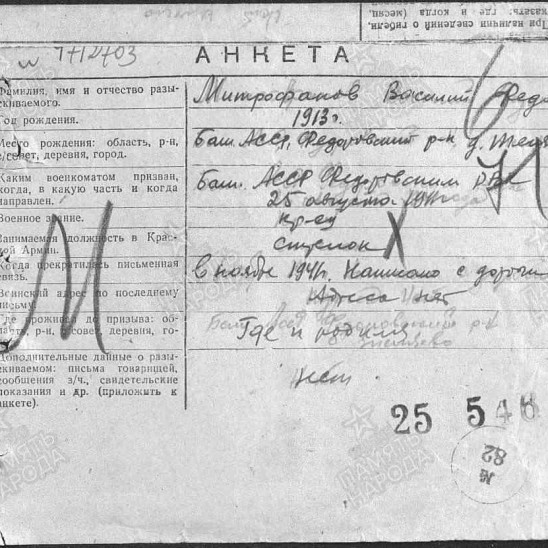 казать: где и когда
(месяц).
При наличии сведений о гибели,
№ 7712703
АНКЕТА
Фамилия, имя и отчество разы-
скиваемого.
Митрофанов Василий Федо
Год рождения.
1913г.
Место рождения: область, р-н,
с/совет, деревня, город.
Баш. АССР, Федоровский р-н д.
Каким военкоматом призван,
когда, в какую часть и когда
направлен.
Баш. АССР Федоровским РВК
25 августа 1941
Военное звание.
кр-ец
Занимаемая должность в Крас-
ной Армии.
стрелок
Когда прекратилась письменная
связь.
в ноябре 1941г. Написано с дороги
Воинский адрес по последнему
письму.
Адреса нет
Где проживал до призыва: об-
ласть, р-н, с/совет, деревня, го-
Где и родился
Дополнительные данные о разы-
скиваемом: письма товарищей,
сообщения з/ч., свидетельские
показания и др. (приложить к
анкете).
нет
25 5 46
№
82
ПАМЯТЬ
НАРОДА